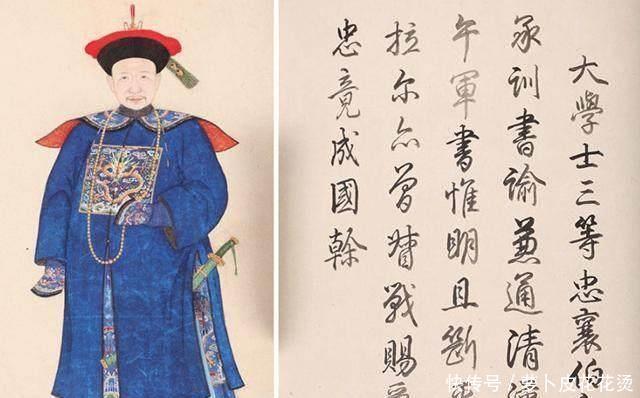 大學士三等忠襄伯
承訓書諭兼通清漢
午軍書惟明且斷
拉尔亦曾督戰賜
忠竟成國幹
快传号/萝卜皮花花烫